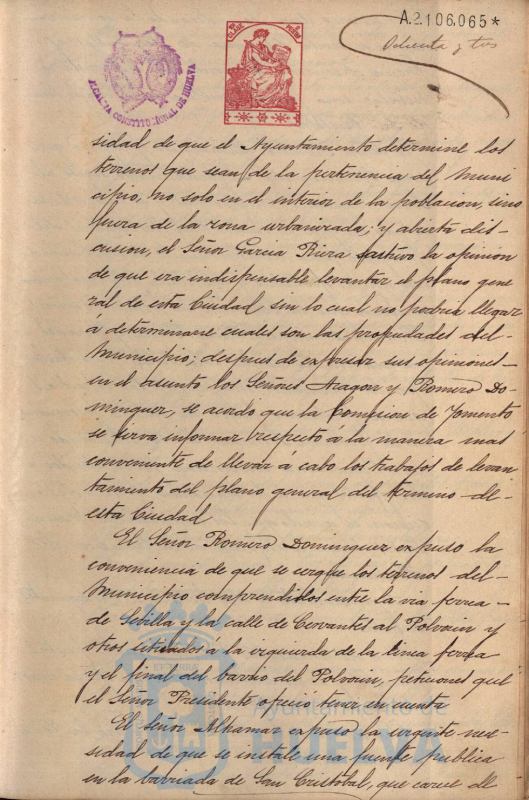 A.2.106.065*
Ochenta y tres
ALCALDIA CONSTITUCIONAL DE HUELVA
sidad de que el Ayuntamiento determine los
terrenos que sean de la pertenencia del Muni
cipio, no solo en el interior de la poblacion, sino
fuera de la zona urbanizada; y abierta dis-
cusion, el Señor Garcia Riera sostuvo la opinion
de que era indispensable levantar el plano gene
ral de esta Ciudad sin lo cual no podria llegar
á determinarse cuales son las propiedades del-
Municipio; despues de expresar sus opiniones-
en el asunto los Señores Aragon y Romero Do-
minguez, se acordó que la Comision de Fomento
se sirva informar respecto á la manera mas
conveniente de llevar á cabo los trabajos de levan
tamiento del plano general del termino de-
esta Ciudad
El Señor Romero Dominguez expuso la
conveniencia de que se cerquen los terrenos del-
Municipio comprendidos entre la via ferrea-
de Sevilla y la calle de Cervantes al Polvorin y
otros situados á la izquierda de la linea ferrea
y el final del barrio del Polvorin, peticiones que
el Señor Presidente ofreció tener en cuenta
El Señor Alhamar expuso la urgente nece-
sidad de que se instale una fuente publica
en la barriada de San Cristóbal, que carece de
Ayuntamiento de
HUELVA